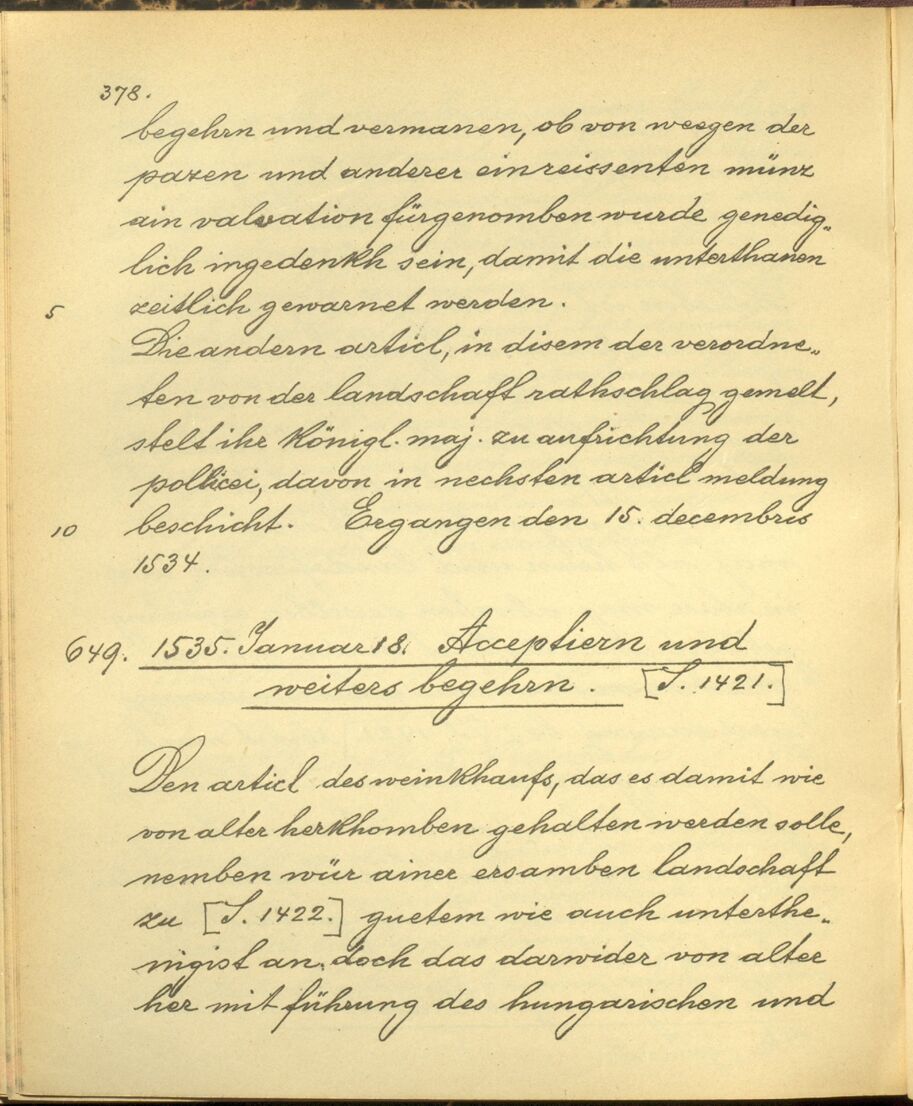 378.
begehrn und vermanen, ob von weegen der
pazen und anderer einreissenten münz
ain valvation fürgenomben wurde genedig„
lich ingedenkh sein, damit die unterthanen
5 zeitlich gewarnet werden.
Die andern articl, in disem der verordne„
ten von der landschaft rathschlag gemelt,
stelt ihr königl. maj. zu aufrichtung der
pollicei, davon in nechsten articl meldung
10 beschicht. Ergangen den 15. decembris
1534.
649. 1535. Januar 18. Acceptiern und
weiters begehrn. [S. 1421.]
Den articl des weinkhaufs, das es damit wie
von alter herkhomben gehalten werden solle,
nemben wür ainer ersamben landschaft
zu [S. 1422.] guetem wie auch unterthe„
nigist an, doch das darwider von alter
her mit führung des hungarischen und